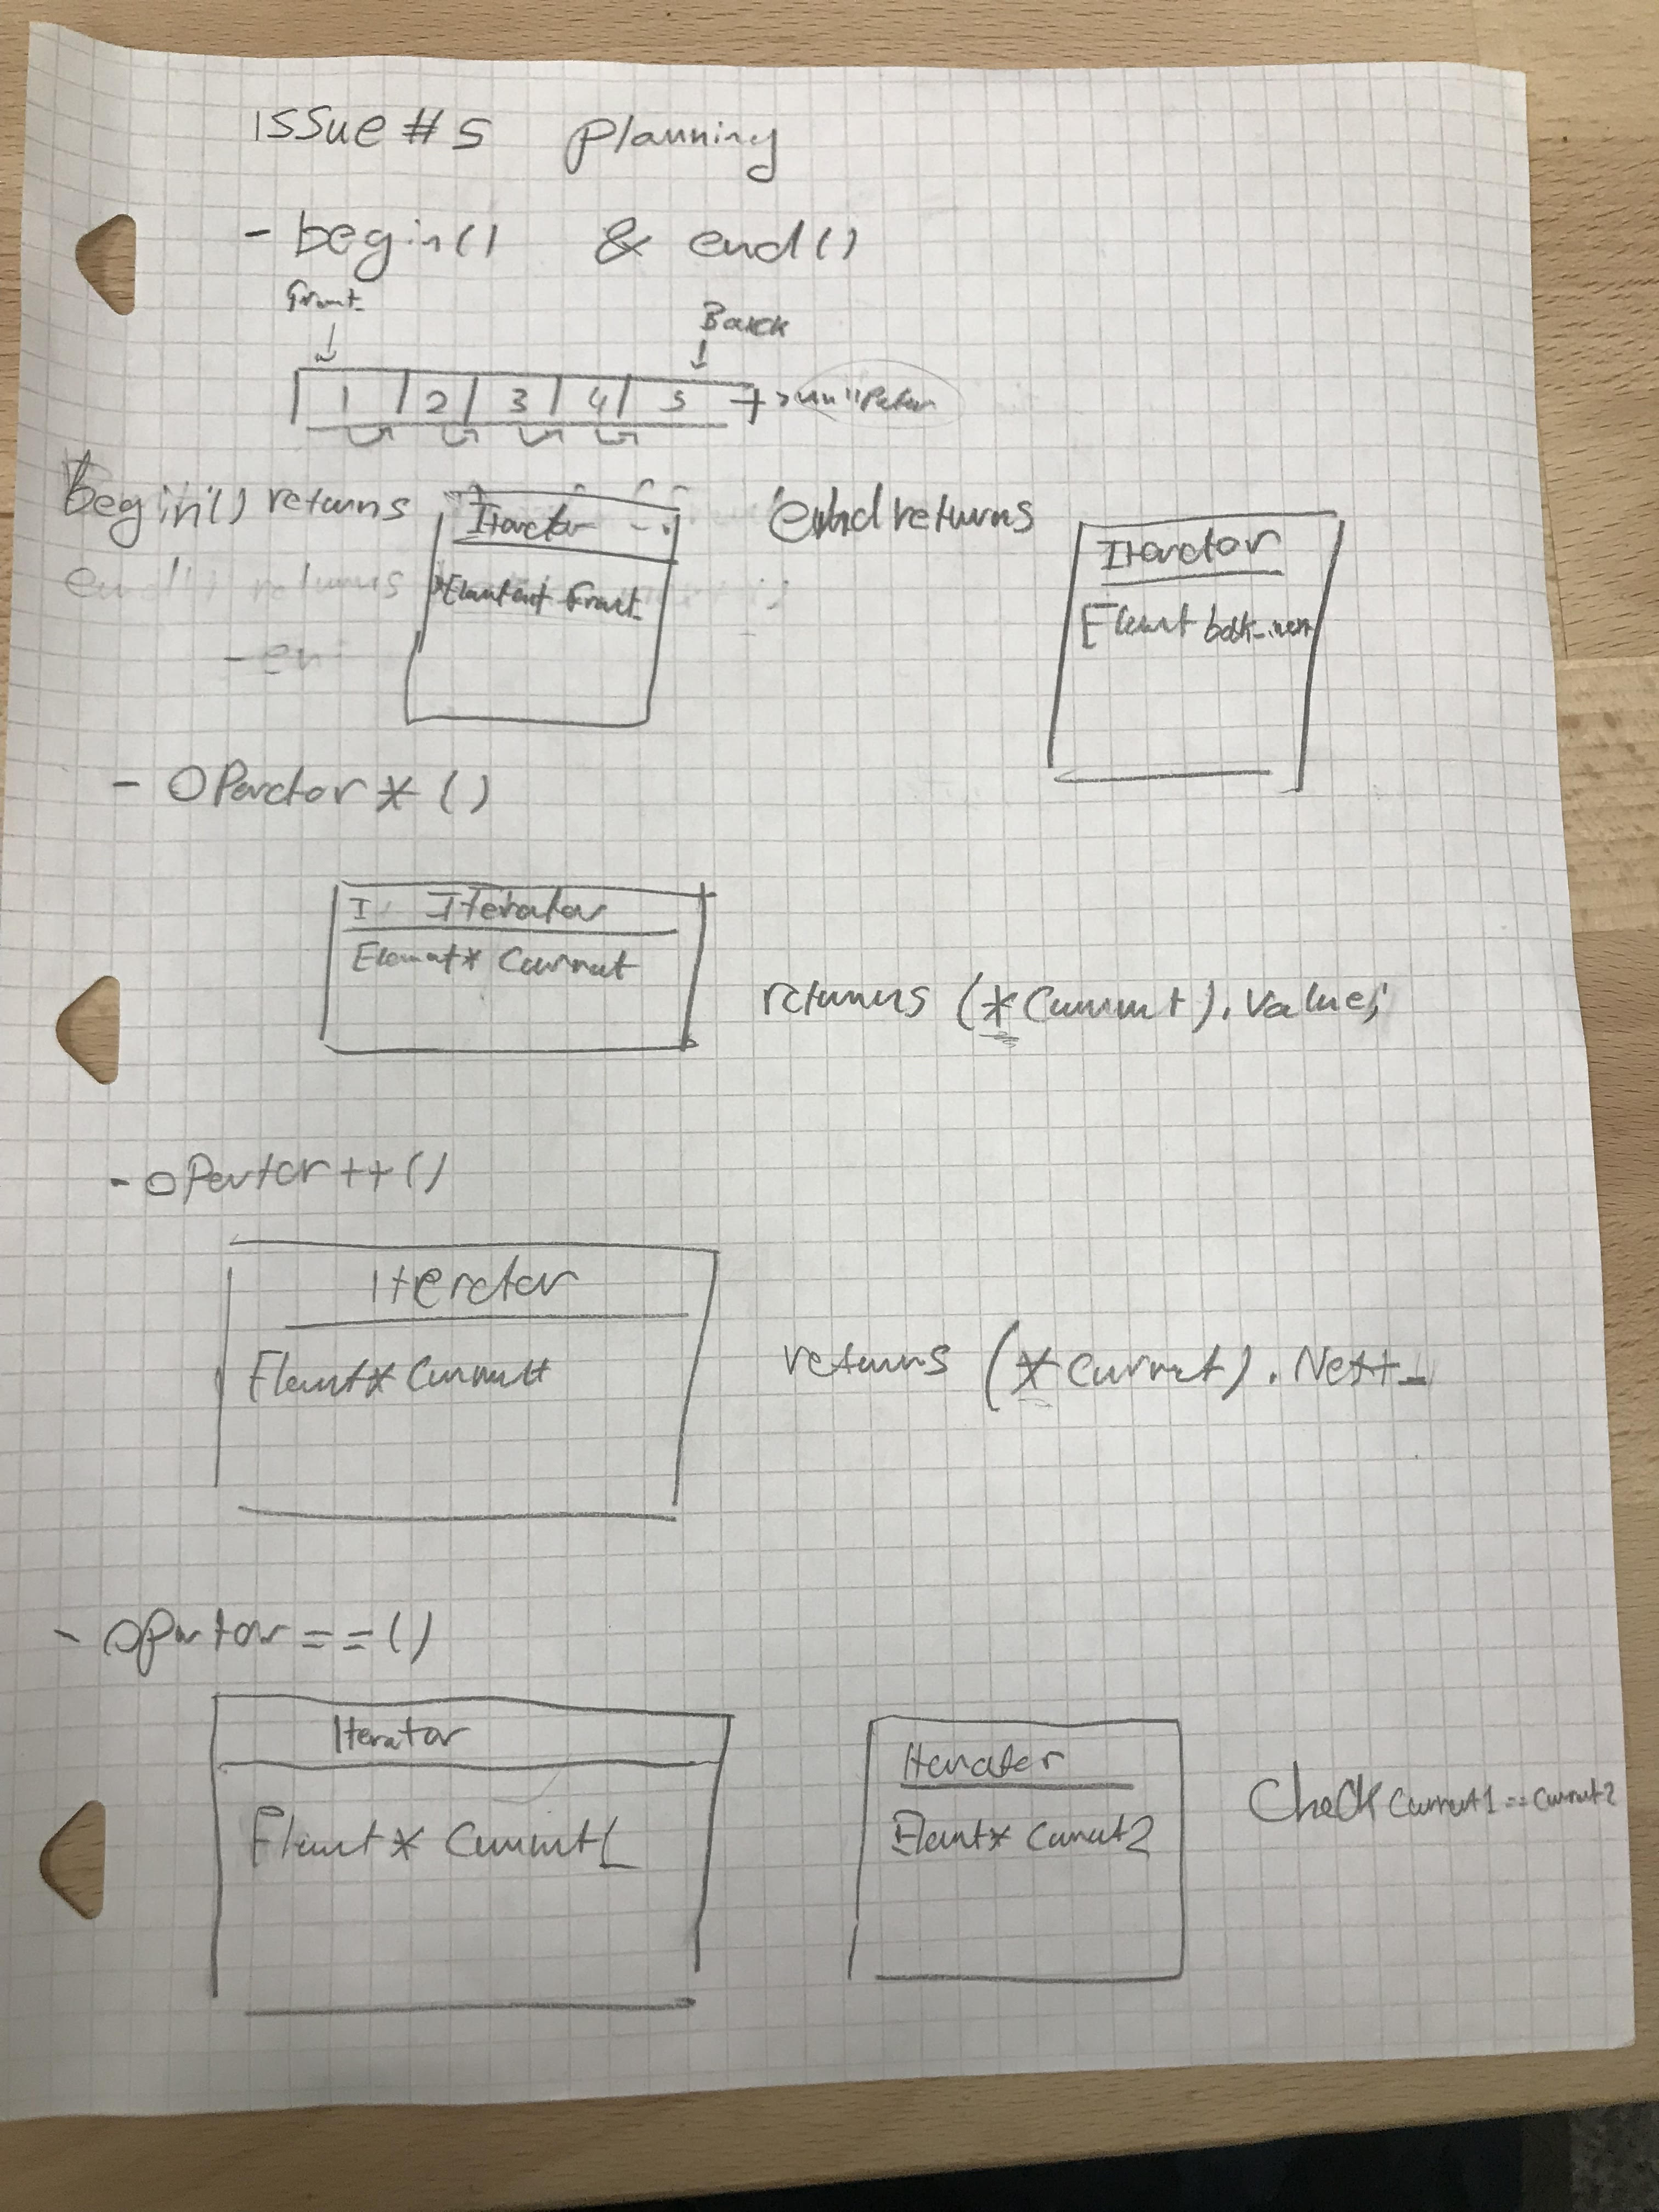 issue #5 Planning
- begin() & end()
Front
Back
1 2 3 4 5
begin() returns
end returns
end() returns
Iterator
Front
Iterator
Element back_next
- Operator * ()
I Iterator
Element* Current
returns (*Current).Value;
- operator ++()
Iterator
Element* Current
returns (*Current).Next_
- operator ==()
Iterator
Element* Current1
Iterator
Element* Current2
Check Current1 == Current2